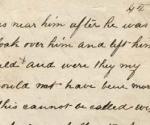 42
as near him after he was
look over him and left him
ld and were they my
ould not have been mor
this cannot be called wi